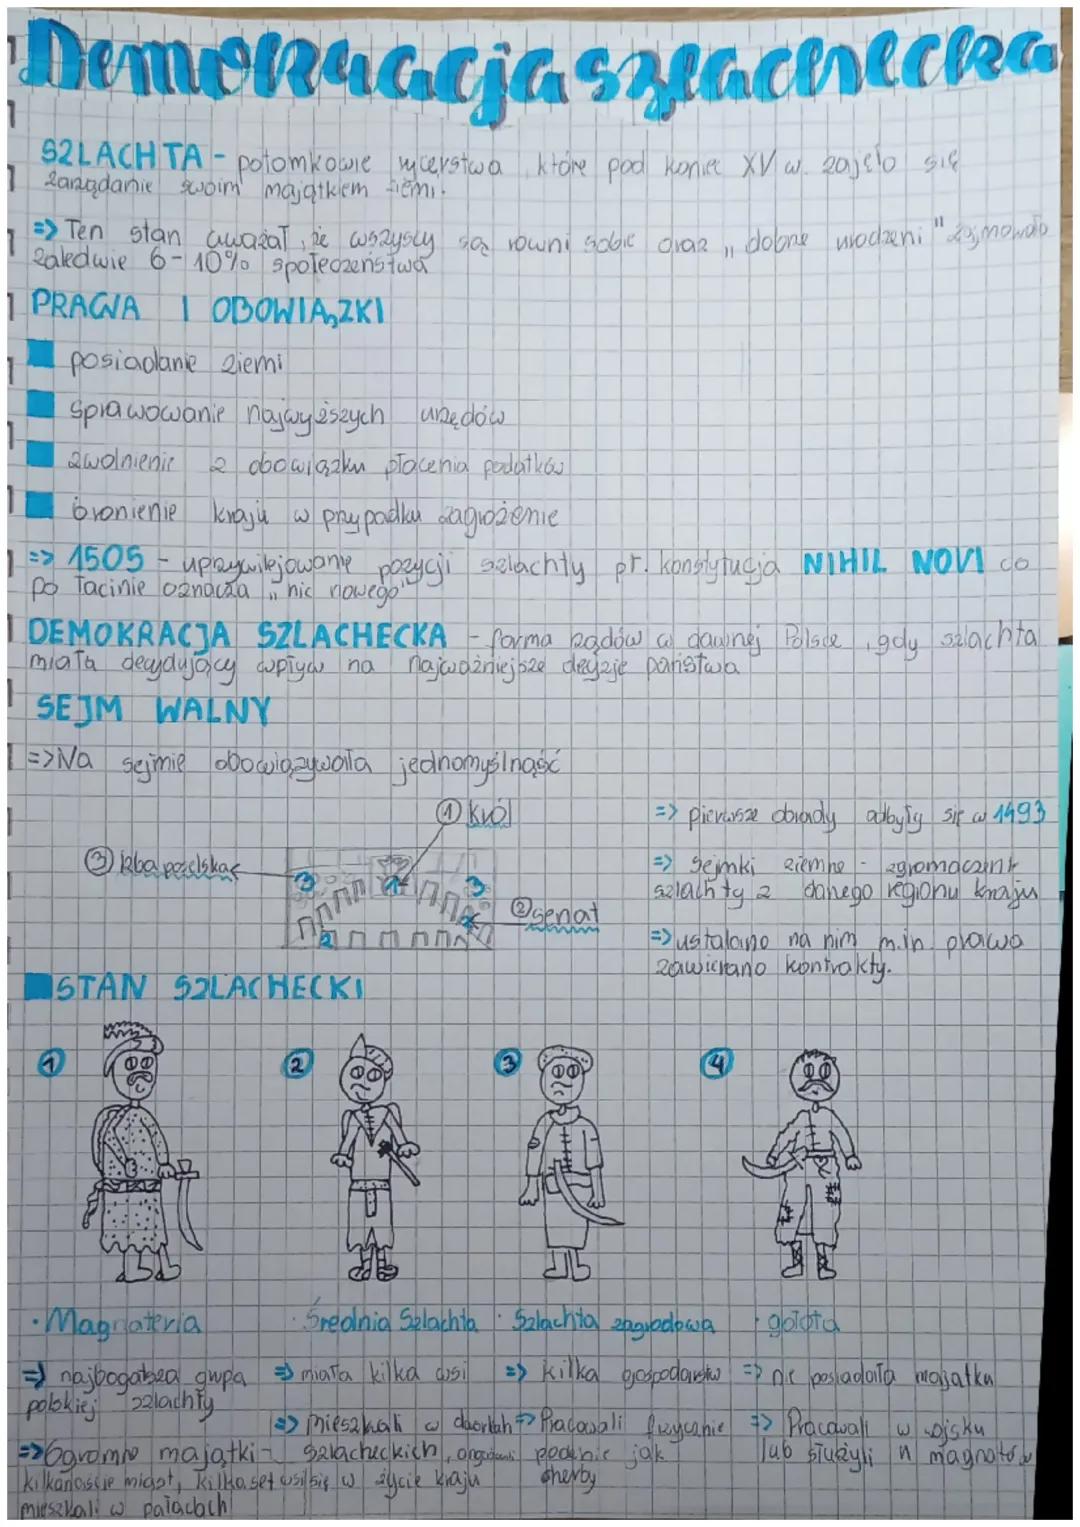 Demokracja szlachecka
SZLACHTA - potomkowie rycerstwa, które pod koniec XV w. zajęło się
zarządanie swoim majątkiem ziemi.
=> Ten stan uważał, że wszyscy są równi sobie oraz „dobne urodzeni" zajmowało
zaledwie 6-10% społeczeństwa
PRAWA I OBOWIĄZKI
posiadanie ziemi
sprawowanie najwyższych urzędów
zwolnienie z obowiązku płacenia podatków
bronienie kraju w przypadku zagrożenie
=> 1505 - uprzywilejowanie pozycji szlachty pr. konstytucja NIHIL NOVI co
po łacinie oznacza „nic nowego"
DEMOKRACJA SZLACHECKA - forma rządów w dawnej Polsce, gdy szlachta
miała decydujący wpływ na najważniejsze decyzje państwa
SEJM WALNY
=> Na sejmie obowiązywała jednomyślność
① Król
③ Izba poselska
3 1 3
② senat
2 2
=> pierwsze obrady odbyły się w 1493
=> Sejmki ziemne - zgromadzenie
szlachty z danego regionu kraju
=> ustalano na nim m.in. prawa
zawierano kontrakty.
STAN SZLACHECKI
1 2 3 4
· Magnateria
=> najbogatsza grupa
polskiej szlachty
=> Ogromne majątki -
kilkanaście miast, kilkaset wsi
mieszkali w pałacach
· Średnia Szlachta
=> miała kilka wsi
=> mieszkali w dworkach
szlacheckich,
się w życie kraju
· Szlachta zagrodowa
=> kilka gospodarstw
=> Pracowali fizycznie
podobnie jak
chłopy
· gołota
=> nic posiadała majątku
=> Pracowali w wojsku
lub służyli u magnatów